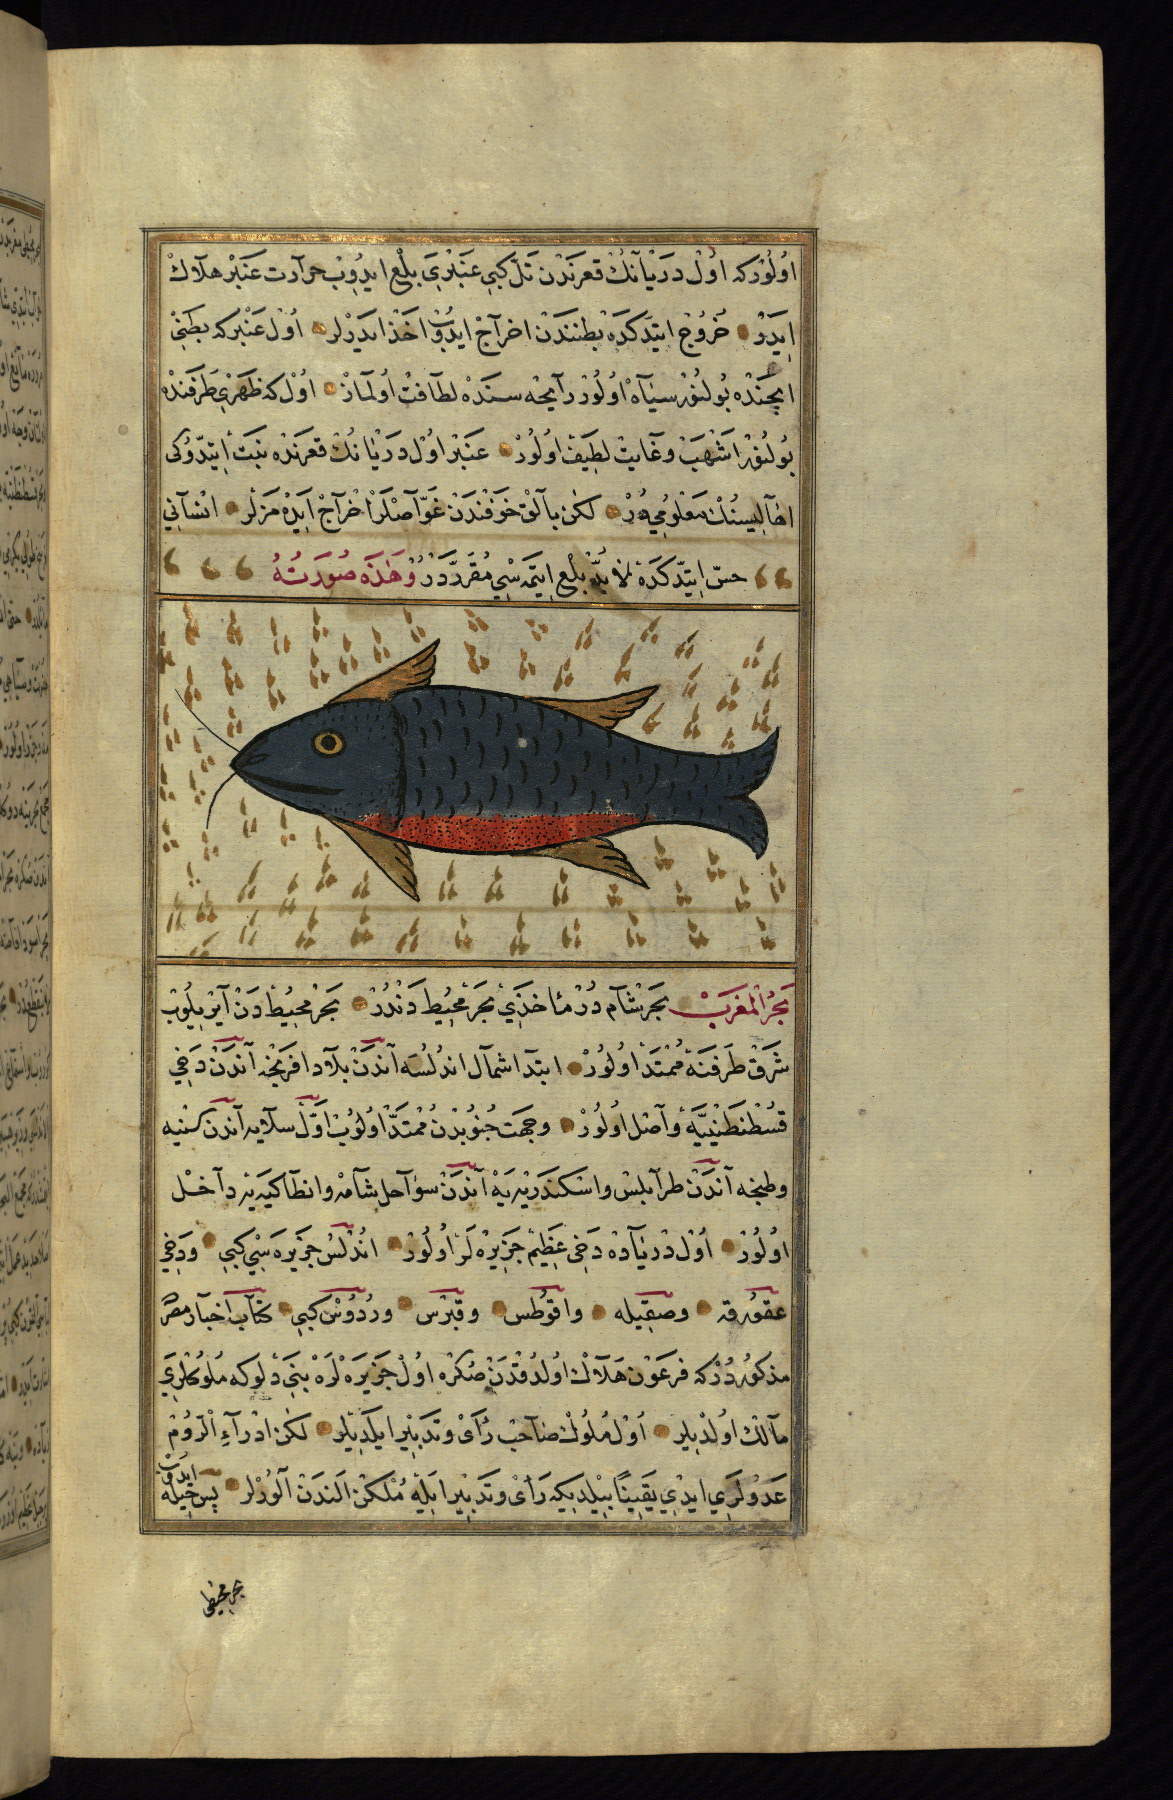 اولوركه اول دريانك قعرندن تل كبي عنبري بلع ايدوب حرارت عنبر هلاك
ايدر خروج ايتدكده بطنندن اخراج ايدوب اخذ ايدرلر اول عنبركه بطني
ايچنده بولنور سياه اولور رايحه سنده لطافت اولماز اول كه ظهري طرفنده
بولنور اشهب وغايت لطيف اولور عنبر اول دريانك قعرنده نبت ايتدوكى
اهاليسنك معلوميدر لكن بالق خوفندن غواصلر اخراج ايده مزلر انساني
حس ايتدكده لا بد بلع ايتمه سي مقرردر وهذه صورته
بحر المغرب بحر شام در مأخذي بحر محيط دندر بحر محيط دن آيريلوب
شرق طرفنه ممتد اولور ابتدا شمال اندلسه آندن بلاد افرنجه آندن دخي
قسطنطنيه يه واصل اولور وجهت جنوبدن ممتد اولوب اول سلايه آندن سبته
وطنجه آندن طرابلس واسكندريه يه آندن سواحل شامه وانطاكيه يه داخل
اولور اول درياده دخى عظيم جزيره لر اولور اندلس جزيره سي كبي ودخي
وصقيله واقريطس وقبرس ورودوس كبي كتاب اخبار مصر
مذكوردركه فرعون هلاك اولدقدن صكره اول جزيره لره بني دلوكه ملوكلري
مالك اولديلر اول ملوك صاحب رأى وتدبير ايلديلر لكن ادراء الروم
عدولري ايدي يقينا بيلديكه رأى وتدبير ايله ملكن الندن آلورلر پس حيله ايدوب
بحر محيطى